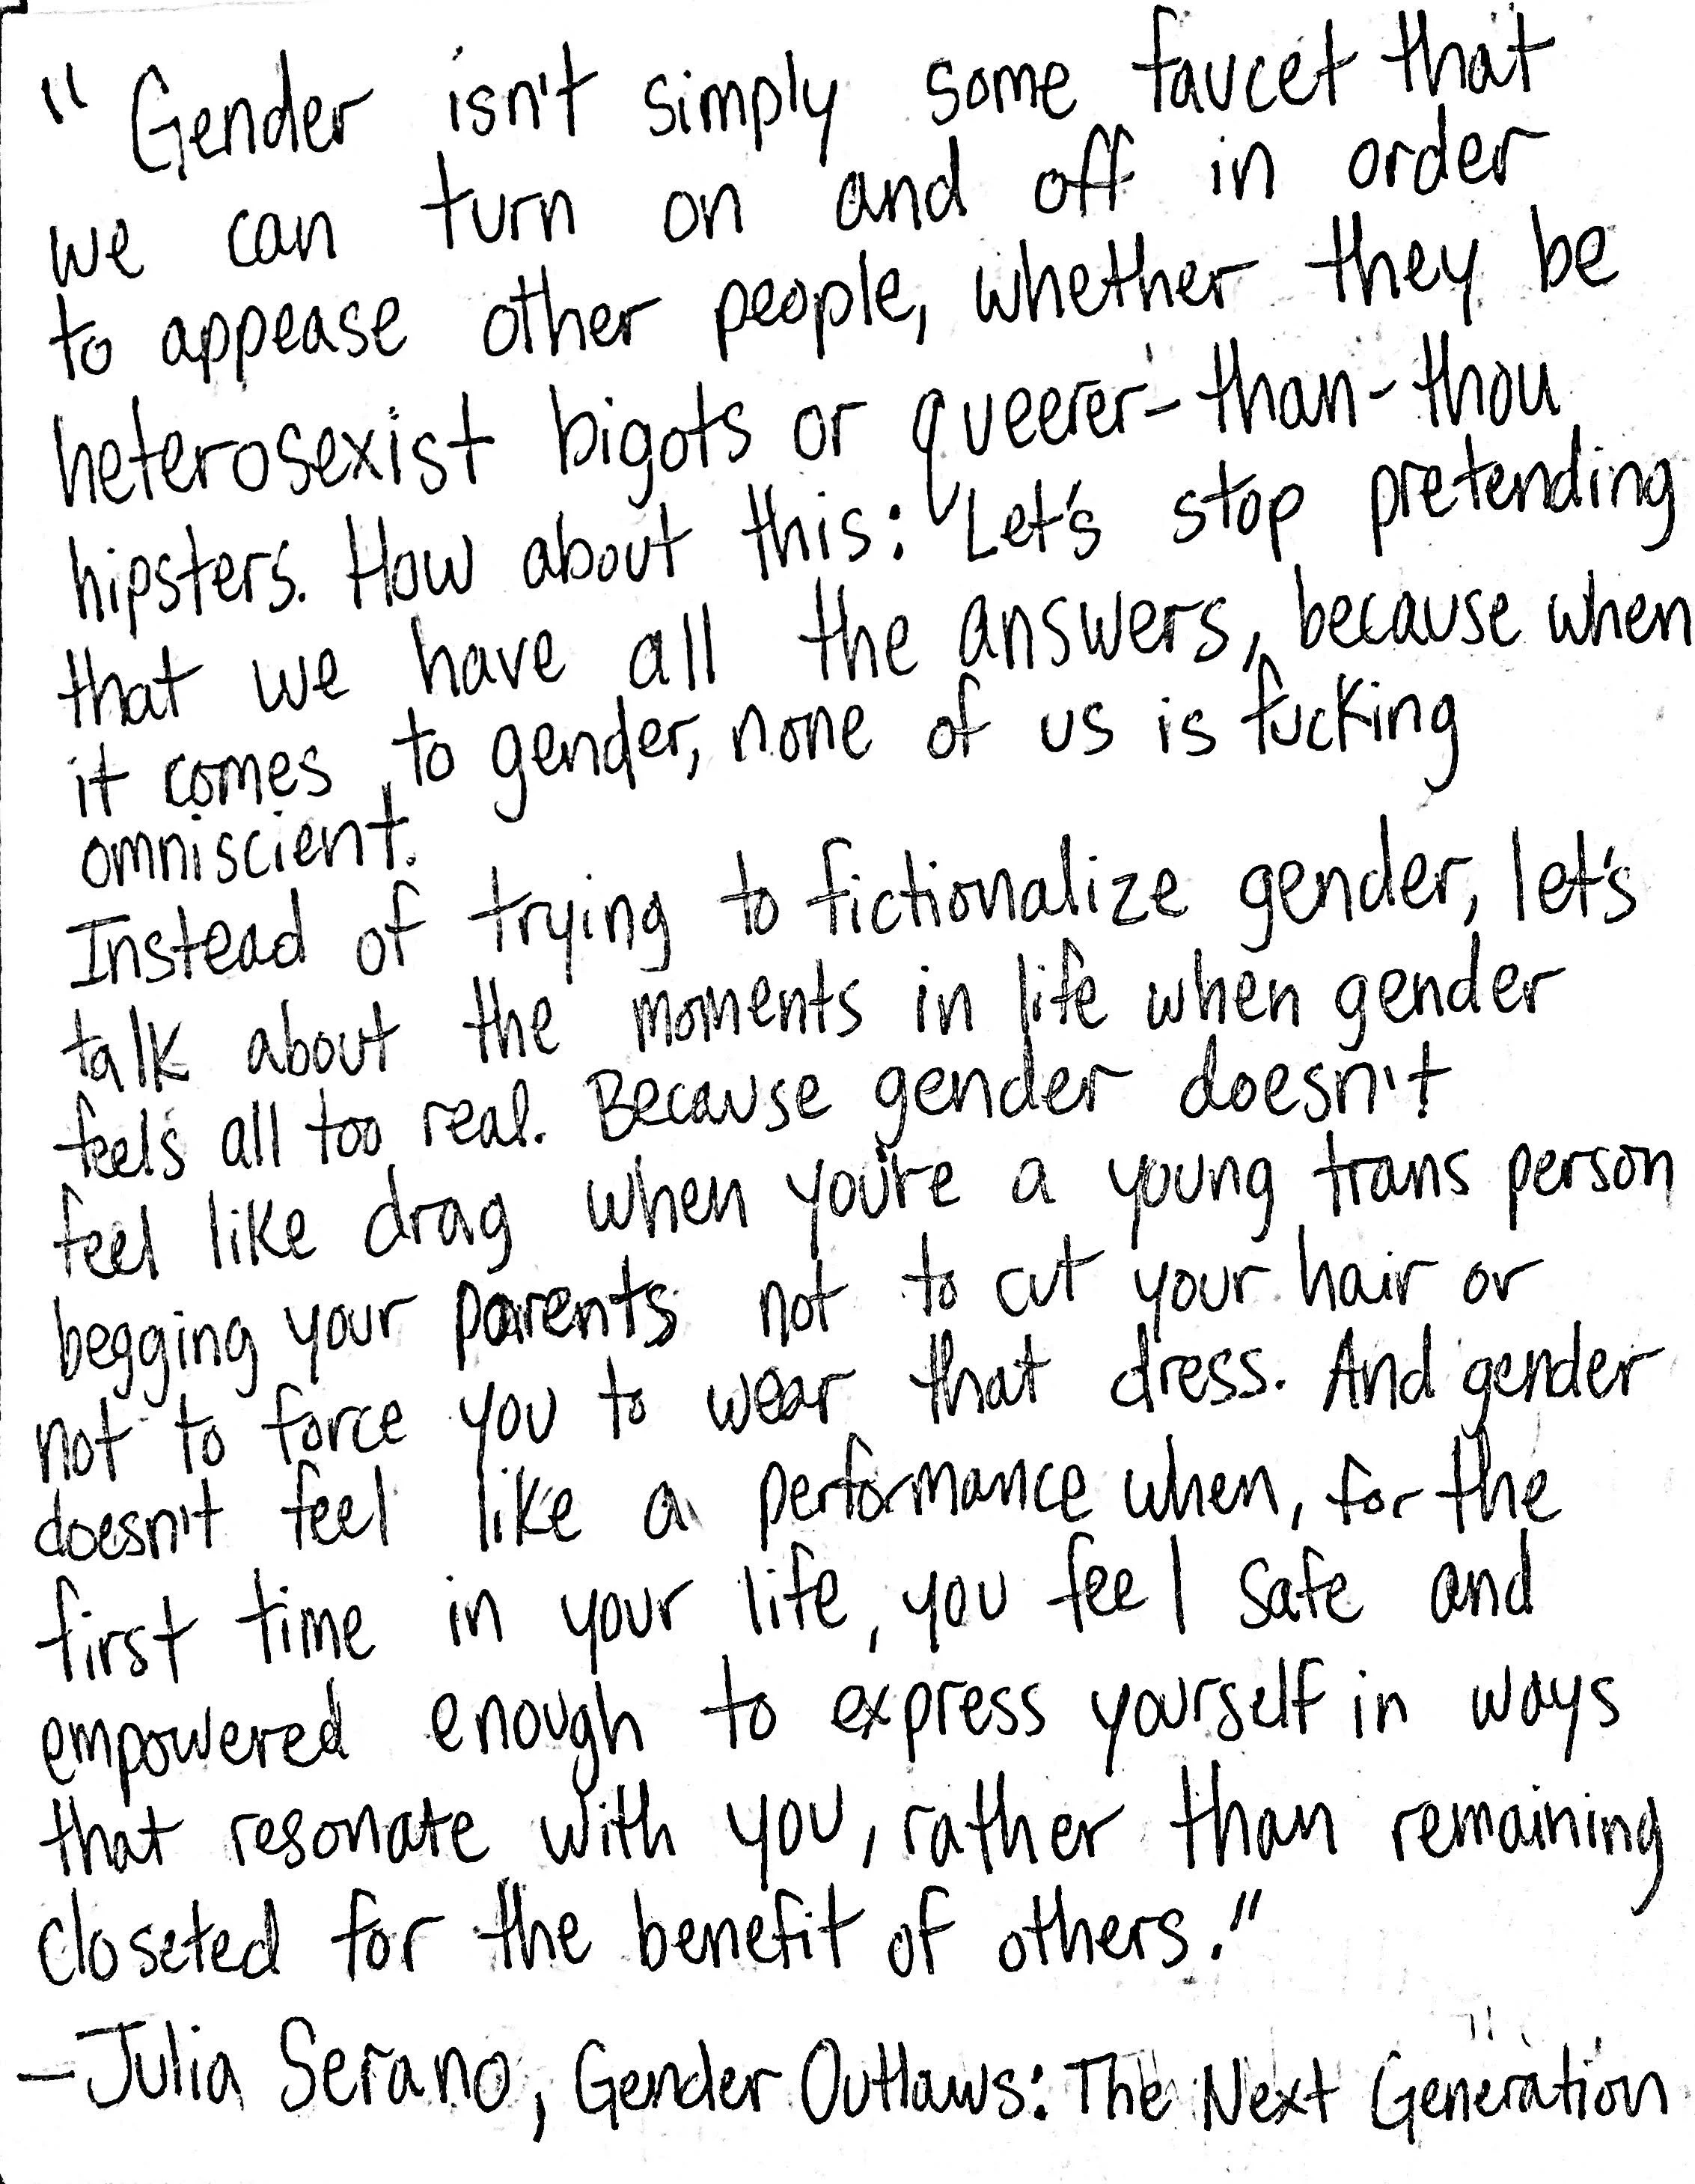 "Gender isn't simply some faucet that
we can turn on and off in order
to appease other people, whether they be
heterosexist bigots or queerer-than-thou
hipsters. How about this: Let's stop pretending
that we have all the answers, because when
it comes to gender, none of us is fucking
omniscient.
Instead of trying to fictionalize gender, let's
talk about the moments in life when gender
feels all too real. Because gender doesn't
feel like drag when you're a young trans person
begging your parents not to cut your hair or
not to force you to wear that dress. And gender
doesn't feel like a performance when, for the
first time in your life, you feel safe and
empowered enough to express yourself in ways
that resonate with you, rather than remaining
closeted for the benefit of others."
–Julia Serano, Gender Outlaws: The Next Generation